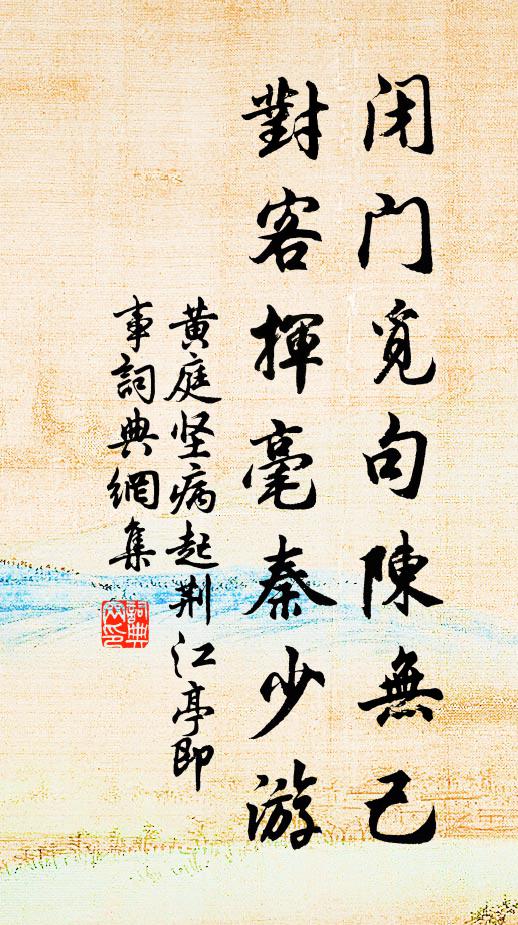 闭门觅句陳無己
對客揮毫秦少游
黄庭坚病起荆江亭即
事詞典網集
詞典網印